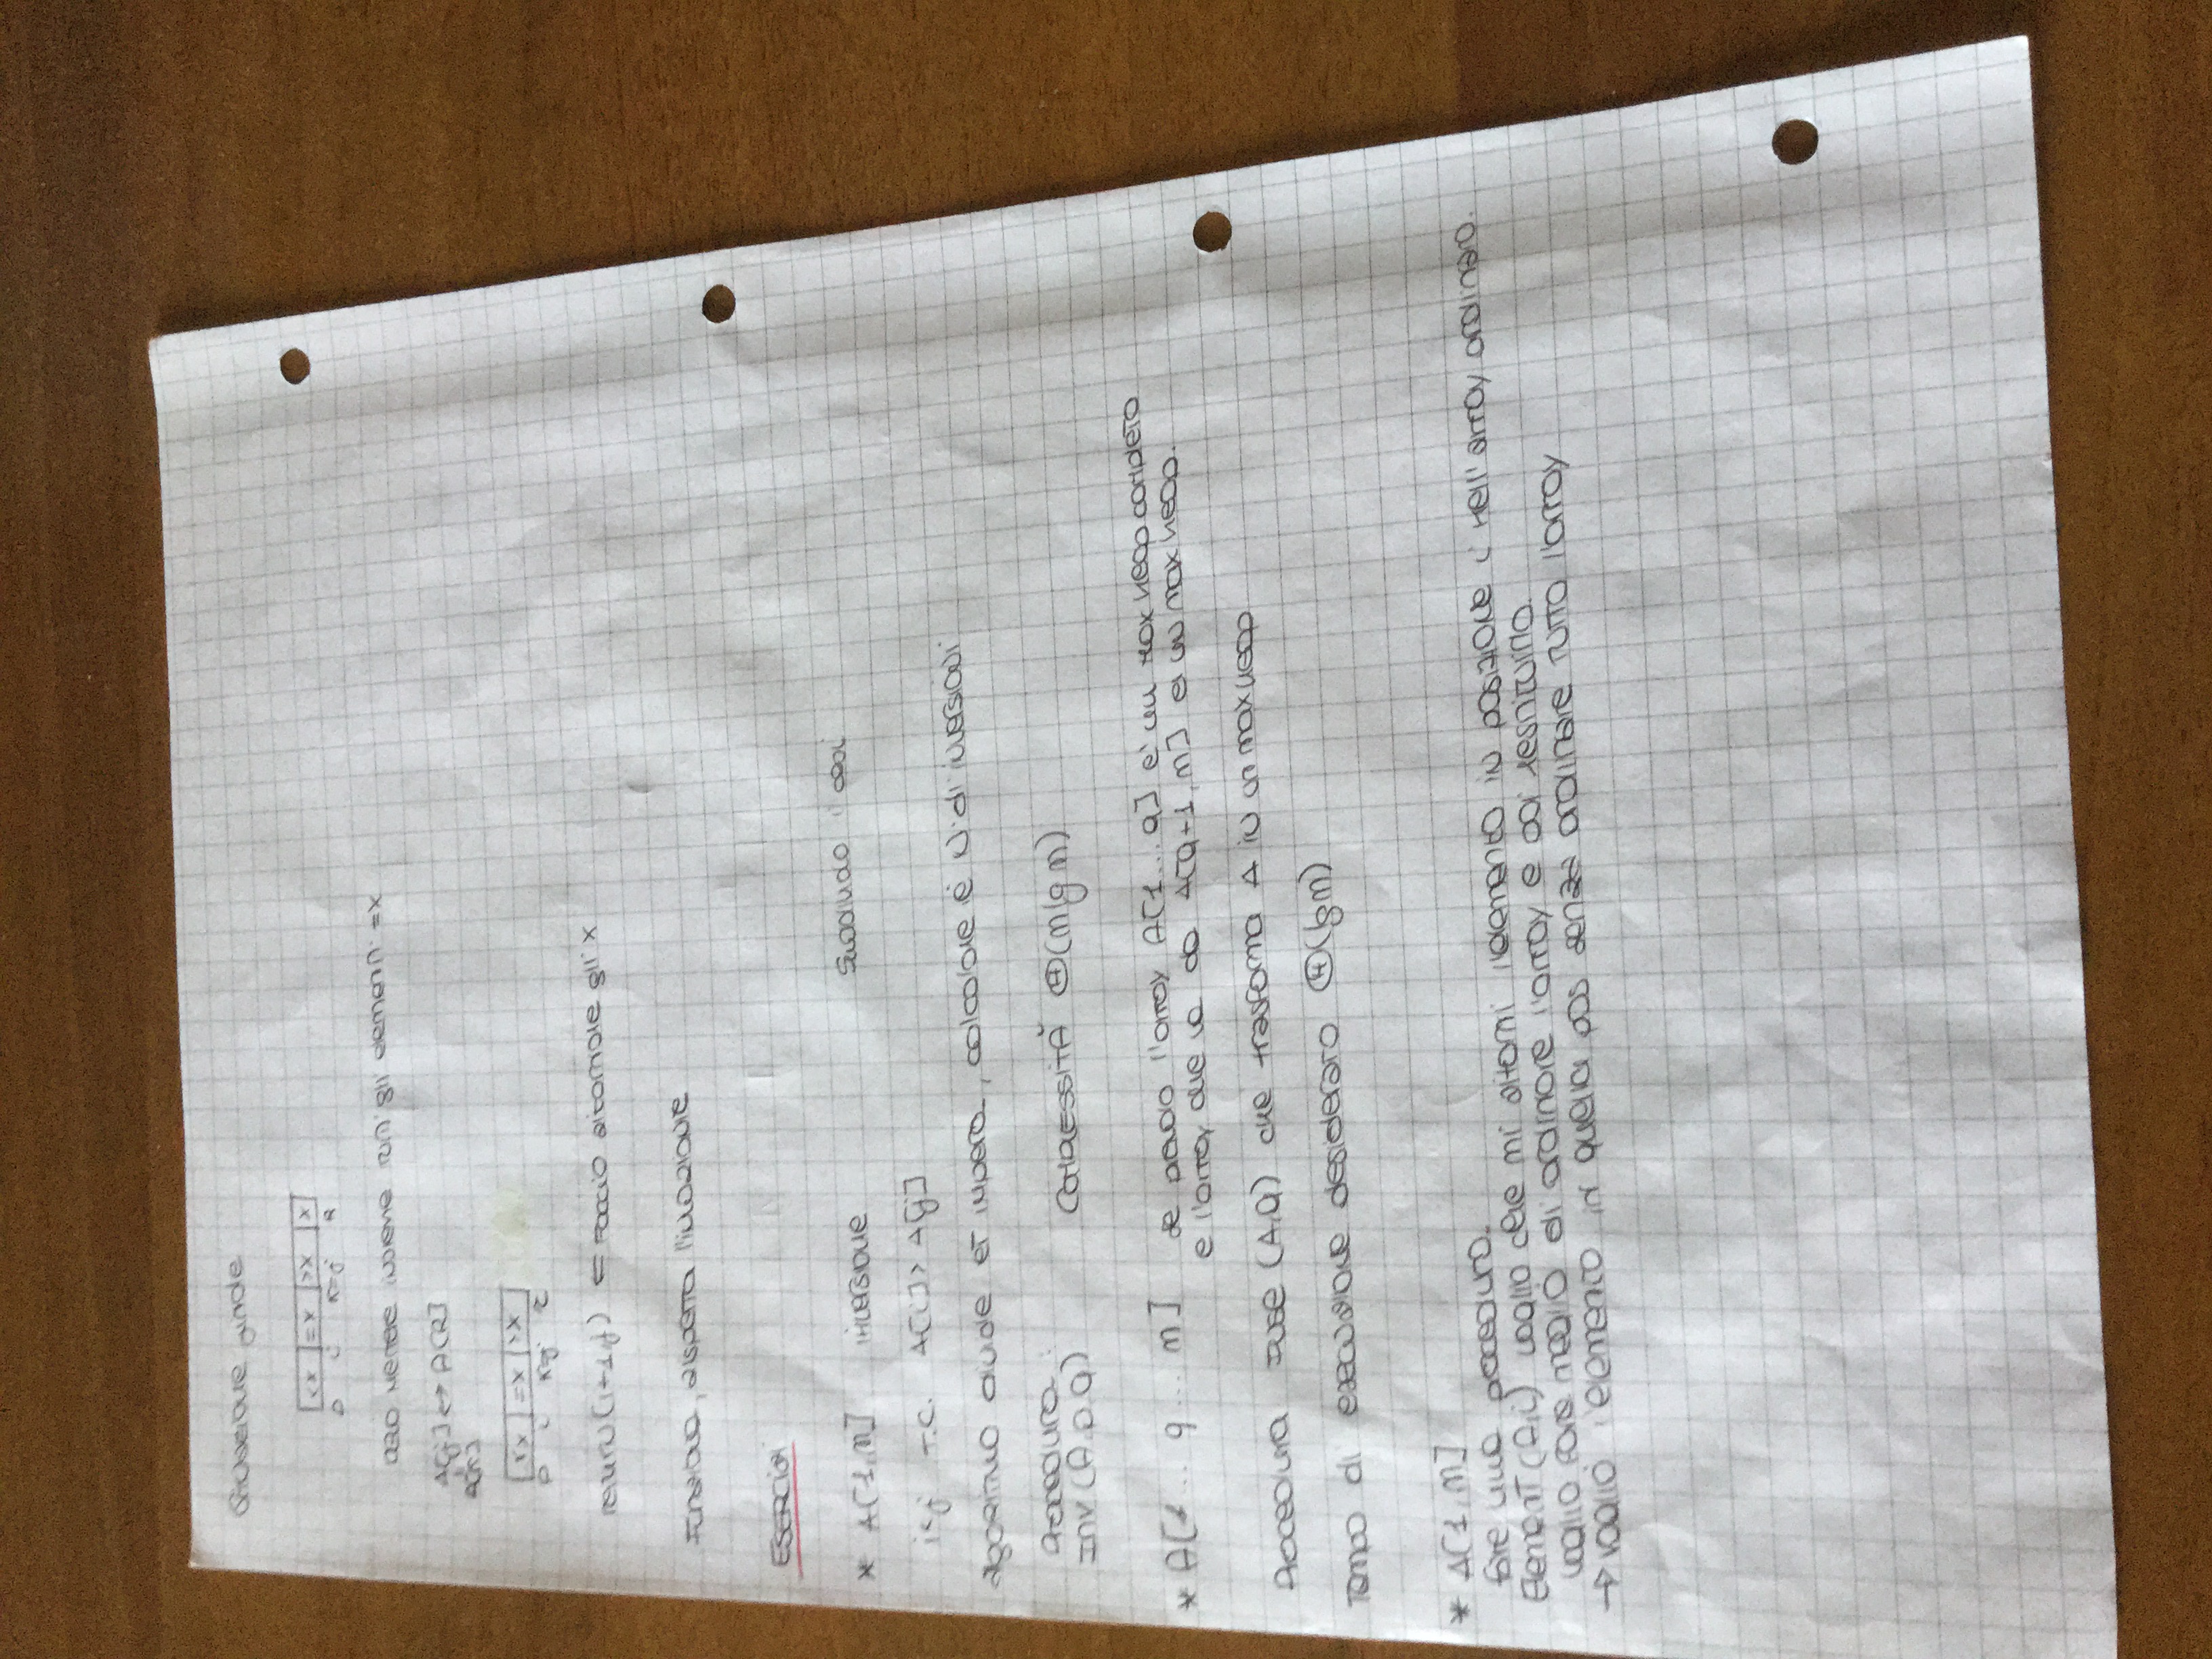 Situazione finale
<x =x >x x
p i k=j r
devo mettere insieme tutti gli elementi =x
A[j] ↔ A[R]
A[k]
<x =x >x
p i k=j r
return (i+1, j) ⇐ faccio ritornare gli x
Funziona, rispetta l'invariante
ESERCIZI
* A[1, n] inversione Studiando i casi
i<j T.C. A[i] > A[j]
algoritmo divide et impera, calcolare il N. di inversioni
Procedura:
INV (A, p, q) COMPLESSITÀ Θ(n lg n)
* A[1 ... q ... n] se prendo l'array A[1 ... q] e' un max heap completo
e l'array che va da A[q+1, n] e' un max heap.
Procedura FUSE (A, q) che trasforma A in un max heap
Tempo di esecuzione desiderato Θ(lg n)
* A[1, n]
fare una procedura.
Element (A, i) voglio che mi ritorni l'elemento in posizione i nell'array ordinato.
voglio fare meglio di ordinare l'array e poi restituirlo.
→ voglio l'elemento in quella pos senza ordinare tutto l'array